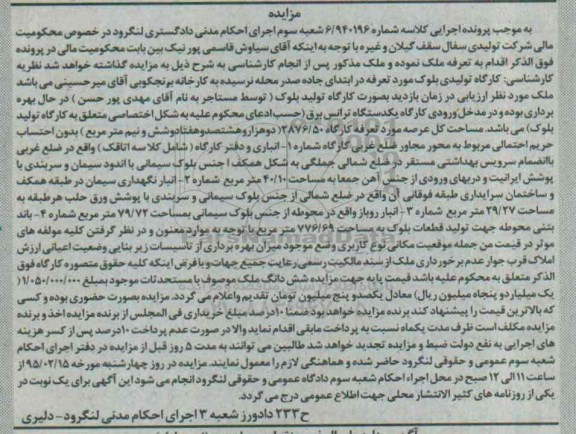 مزایده
به موجب پرونده اجرایی کلاسه شماره ۶/۹۴۰۱۹۶ شعبه سوم اجرای احکام مدنی دادگستری لنگرود در خصوص محکومیت
مالی شرکت تولیدی سفال سقف گیلان و غیره با توجه به اینکه آقای سیاوش قاسمی پور نیک بین بابت محکومیت مالی در پرونده
فوق الذکر اقدام به تعرفه ملک نموده و ملک مذکور پس از انجام کارشناسی به شرح ذیل به مزایده گذاشته خواهد شد نظریه
کارشناسی: کارگاه تولیدی بلوک مورد تعرفه در ابتدای جاده صدر محله نرسیده به کارخانه برنجکوبی آقای میرحسینی می باشد
ملک مورد نظر ارزیابی در زمان بازدید بصورت کارگاه تولید بلوک ( توسط مستاجر به نام آقای مهدی پور حسن ) در حال بهره
برداری بوده و در مدخل ورودی کارگاه یکدستگاه ترانس برق (حسب ادعای محکوم علیه به شکل اختصاصی متعلق به کارگاه تولید
بلوک) می باشد. مساحت کل عرصه مورد تعرفه کارگاه ۲۸۷۶/۵۰ (دوهزار و هشتصد و هفتاد و شش و نیم متر مربع ) بدون احتساب
حریم احتمالی مربوط به محور مجاور ضلع غربی کارگاه شماره ۱- انباری و دفتر کارگاه ( شامل کلا سه اتاقک ) واقع در ضلع غربی
باانضمام سرویس بهداشتی مستقر در ضلع شمالی جملگی به شکل همکف ا جنس بلوک سیمانی با اندود سیمان و سربندی با
پوشش ایرانیت و دربهای ورودی از جنس آهن جمعا به مساحت ۴۰/۱۰ متر مربع شماره ۲- انبار نگهداری سیمان در طبقه همکف
و ساختمان سرایداری طبقه فوقانی آن واقع در ضلع شمالی از جنس بلوک سیمانی و سربندی با پوشش ورق حلب هر طبقه به
مساحت ۲۹/۲۷ متر مربع شماره ۳- انبار روباز واقع در محوطه از جنس بلوک سیمانی بمساحت ۷۹/۷۲ متر مربع شماره ۴- باند
بتنی محوطه جهت تولید قطعات بلوک به مساحت ۷۷۶/۶۹ متر مربع با توجه به موارد معنون و در نظر گرفتن کلیه مولفه های
موثر در قیمت من جمله موقعیت مکانی نوع کاربری وضع موجود میزان بهره برداری از تاسیسات زیر بنایی وضعیت اعیانی ارزش
املاک قرب جوار عدم برخورداری ملک از سند مالکیت رسمی رعایت جمیع جهات و با فرض اینکه کلیه حقوق متصوره کارگاه فوق
الذکر متعلق به محکوم علیه باشد قیمت پایه جهت مزایده شش دانگ ملک موصوف با مستحدثات موجود بمبلغ ۱/۰۵۰/۰۰۰/۰۰۰(
یک میلیارد و پنجاه میلیون ریال) معادل یکصد و پنج میلیون تومان تقدیم و اعلام می گردد. مزایده بصورت حضوری بوده و کسی
که بالاترین قیمت را پیشنهاد کند برنده مزایده خواهد بود ضمنا ۱۰درصد مبلغ خریداری فی المجلس از برنده مزایده اخذ و برنده
مزایده مکلف است ظرف مدت یکماه نسبت به پرداخت مابقی اقدام نماید والا در صورت عدم پرداخت ۱۰درصد پس از کسر هزینه
های اجرایی به نفع دولت ضبط و مزایده تجدید خواهد شد طالبین می توانند به مدت ۵ روز قبل از مزایده در دفتر اجرای احکام
شعبه سوم عمومی و حقوقی لنگرود حاضر شده و هماهنگی لازم را معمول نمایند. مزایده در روز چهارشنبه مورخه ۹۵/۰۲/۱۵ از
ساعت ۱۱الی ۱۲ صبح در محل اجراء احکام شعبه سوم دادگاه عمومی و حقوقی لنگرود انجام می شود این آگهی برای یک نوبت در
یکی از روزنامه های کثیر الانتشار محلی جهت اطلاع عمومی درج می گردد.
ح۲۳۳ دادورز شعبه ۳ اجرای احکام مدنی لنگرود- دلیری